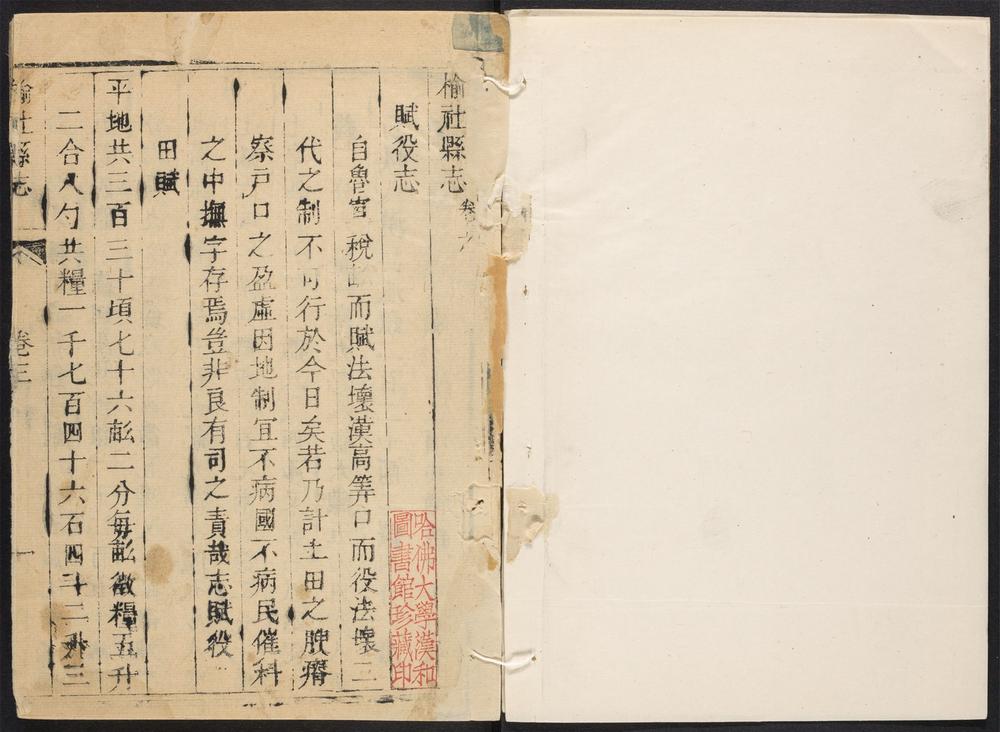 榆社縣志 卷之
賦役志
自魯宣稅畝而賦法壞漢高筭口而役法壞三
代之制不可行於今日矣若乃計土田之腴瘠
察戶口之盈虛因地制宜不病國不病民催科
之中撫字存焉豈非良有司之責哉志賦役
田賦
平地共三百三十頃七十六畝二分每畝徵糧五升
二合八勺共糧一千七百四十六石四斗二升三
榆社縣志 卷三 一
哈佛大學漢和
圖書館珍藏印